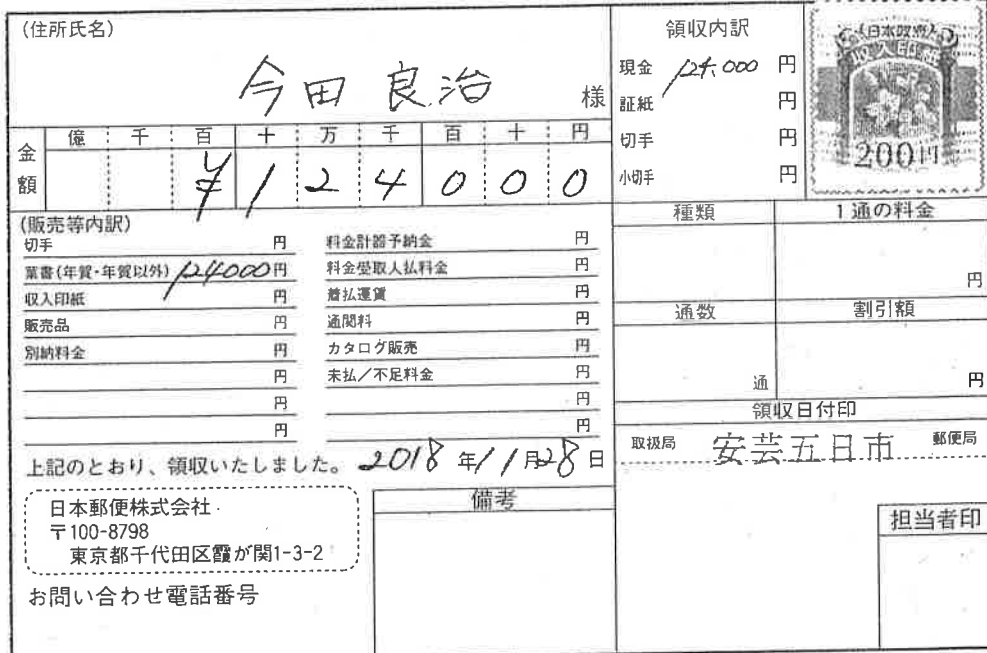 (住所氏名)
今田 良治 様
金額 億 千 百 十 万 千 百 十 円
¥124000
領収内訳
現金 124,000 円
証紙 円
切手 円
小切手 円
日本政府
収入印紙
200円
(販売等内訳)
切手 円
葉書(年賀・年賀以外) 124000円
収入印紙 円
販売品 円
別納料金 円
円
円
円
料金計器予納金 円
料金受取人払料金 円
着払運賃 円
通関料 円
カタログ販売 円
未払/不足料金 円
円
円
種類 1通の料金
円
通数 割引額
通 円
領収日付印
取扱局 安芸五日市 郵便局
上記のとおり、領収いたしました。 2018年11月28日
日本郵便株式会社
〒100-8798
東京都千代田区霞が関1-3-2
お問い合わせ電話番号
備考
担当者印